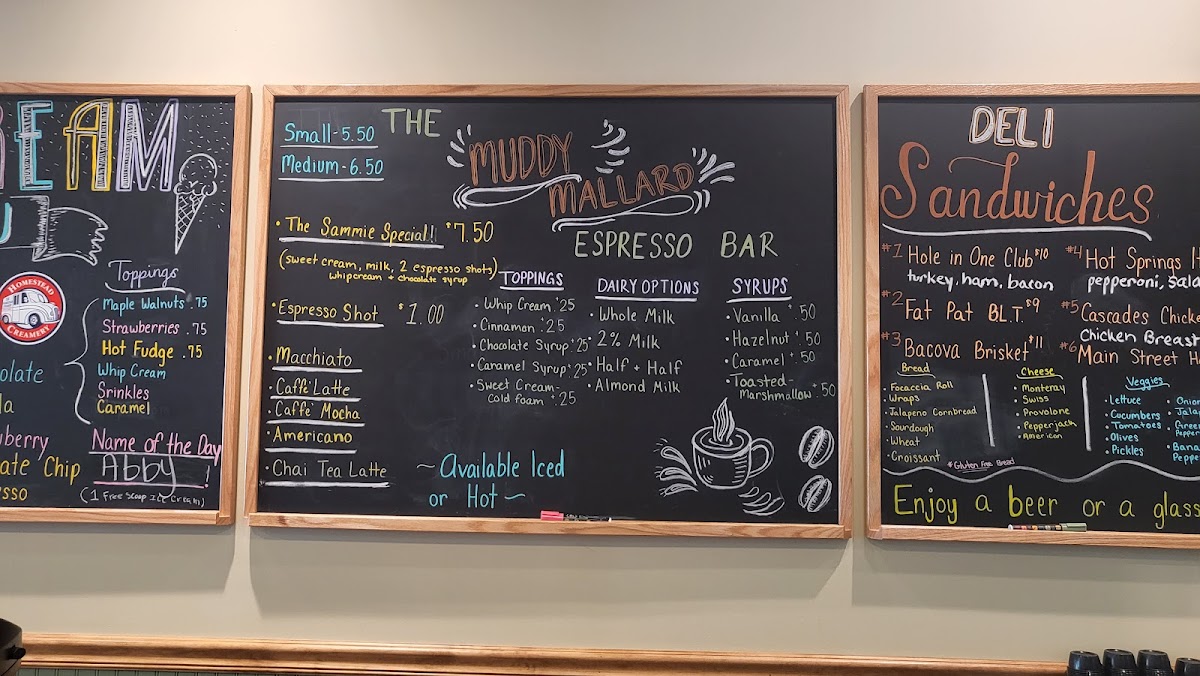 EAM
HOMESTEAD
CREAMERY
Toppings
Maple Walnuts .75
Strawberries .75
Hot Fudge .75
Whip Cream
Srinkles
Caramel
Name of the Day
Abby
(1 Free Scoop Ice Cream)
THE
MUDDY
MALLARD
ESPRESSO BAR
Small - 5.50
Medium - 6.50
• The Sammie Special!! $7.50
(sweet cream, milk, 2 espresso shots)
whipcream + chocolate syrup
• Espresso Shot $1.00
• Macchiato
• Caffe Latte
• Caffe Mocha
• Americano
• Chai Tea Latte
TOPPINGS
• Whip Cream $.25
• Cinnamon $.25
• Chocolate Syrup $.25
• Caramel Syrup $.25
• Sweet Cream-
Cold foam $.25
DAIRY OPTIONS
• Whole Milk
• 2% Milk
• Half + Half
• Almond Milk
SYRUPS
• Vanilla $.50
• Hazelnut $.50
• Caramel $.50
• Toasted-
Marshmallow $.50
~ Available Iced
or Hot ~
DELI
Sandwiches
#1 Hole in One Club $10
turkey, ham, bacon
#2 Fat Pat BL.T. $9
#3 Bacova Brisket $11
#4 Hot Springs
pepperoni,
#5 Cascades
Chicken Breast
#6 Main Street
Bread
• Focaccia Roll
• Wraps
• Jalapeno Cornbread
• Sourdough
• Wheat
• Croissant
* Gluten Free Bread
Cheese
• Monteray
• Swiss
• Provolone
• Pepperjack
• American
Veggies
• Lettuce
• Cucumbers
• Tomatoes
• Olives
• Pickles
Enjoy a beer or a glass